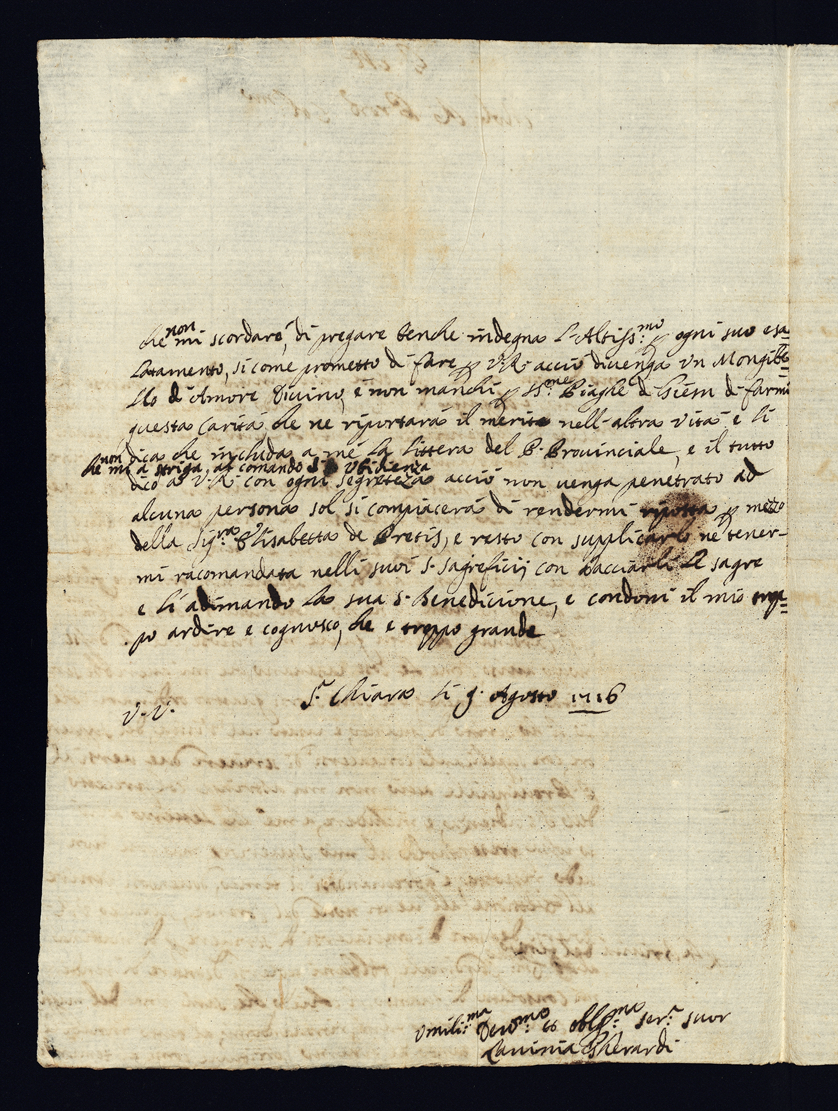 che non mi scordarè, di pregare benche indegna L'Altiss:mo p ogni suo esa=
latamento, si come prometto di fare p V:R: acciò divenga un Mongibe=
llo di Amore Divino, e non manchi p SS:me Piaghe di Giesù di farmi
questa Carità che ne riportarà il merito nell'altra vita e li
dica che includa a mè la littera del P. Provinciale, e il tutto
che non mi a striga, al comando di Ubidienza
dico a V:R: con ogni segreteza acciò non venga penetrato ad
alcuna persona sol si compiacerà di rendermi riposta p mezo
della Sig:ra Elisabetta de Pretis, e resto con supplicarlo ne tener-
mi racomandata nelli suoi S. Sagreficij con bacciarli le sagre
e li adimando la sua S. Benedicione, e condoni il mio trop=
po ardire e cognosco, che e troppo grande
S. Chiara li 9. Agosto 1716
V. V.
Umilis:ma Devo:mo et oblg:mo ser:a suor
Lavinia Gherardi